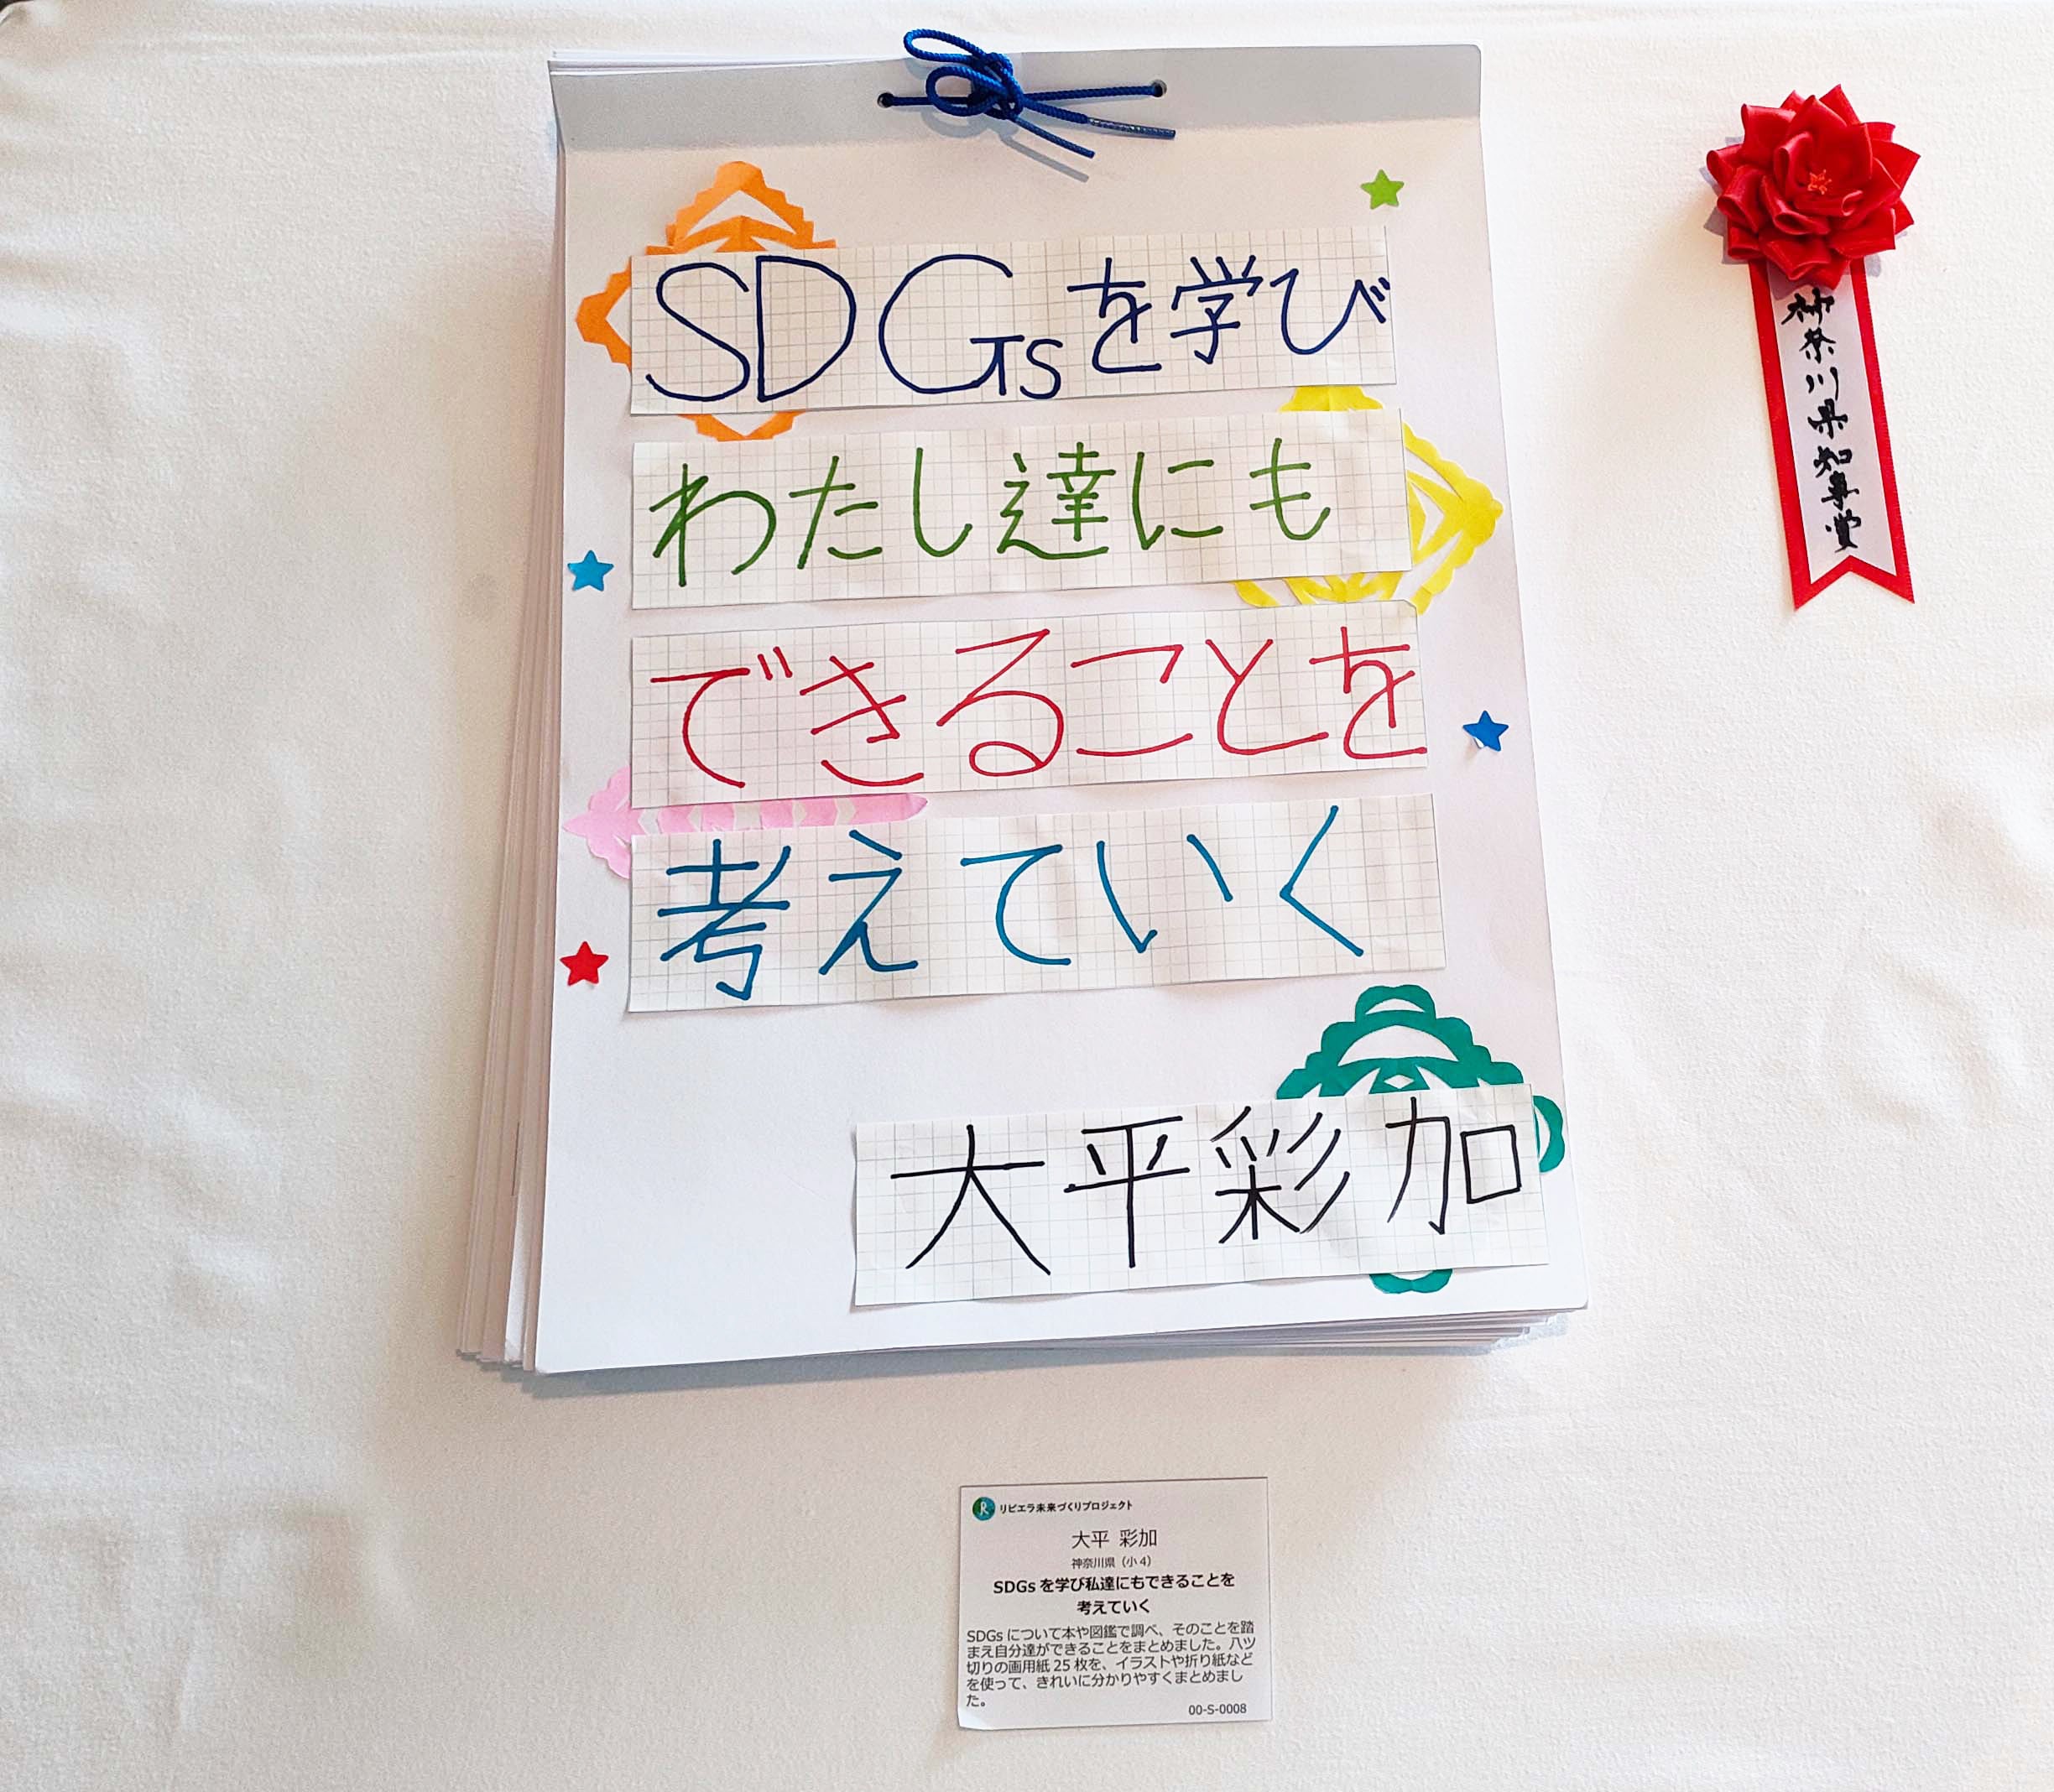 SDGsを学び
わたし達にも
できることを
考えていく
大平彩加
神奈川県知事賞
R リビエラ未来づくりプロジェクト
大平 彩加
神奈川県（小4）
SDGs を学び私達にもできることを
考えていく
SDGs について本や図鑑で調べ、そのことを踏
まえ自分達ができることをまとめました。八ツ
切りの画用紙 25 枚を、イラストや折り紙など
を使って、きれいに分かりやすくまとめまし
た。
00-S-0008